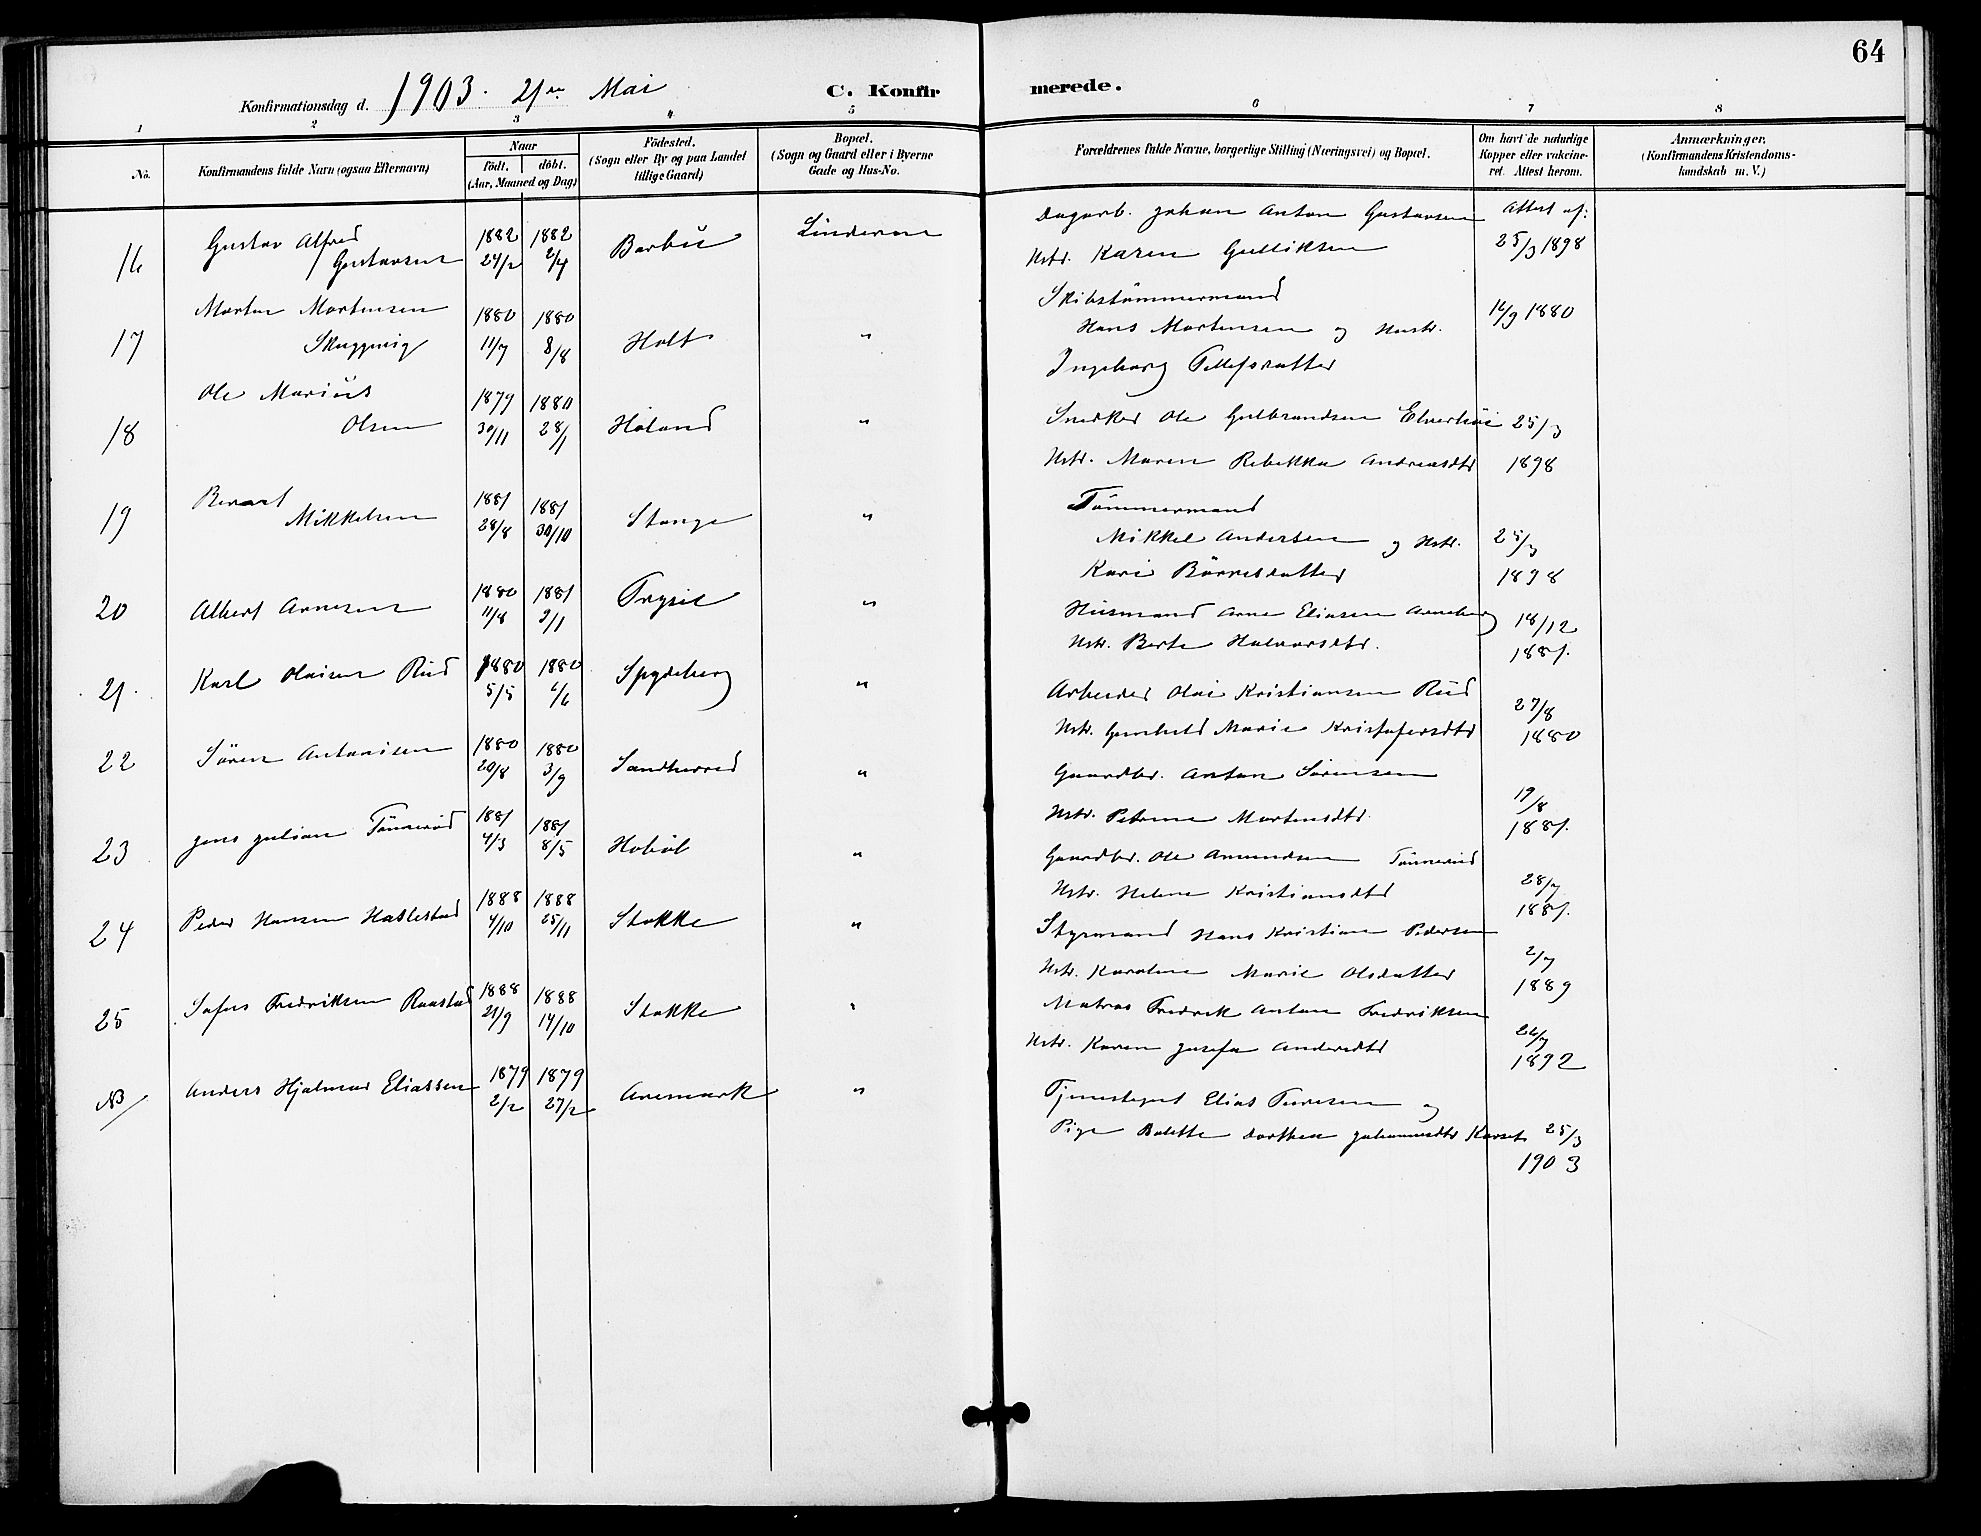 64
Konfirmationsdag d. 1903. 21de Mai
C. Konfirmerede.
1 2 3 4 5 6 7 8
No.
Konfirmandens fulde Navn (ogsaa Efternavn)
Naar
födt. döbt.
(Aar, Maaned og Dag)
Födested.
(Sogn eller By og paa Landet
tillige Gaard)
Bopæl.
(Sogn og Gaard eller i Byerne
Gade og Hus-No.
Forældrenes fulde Navne, borgerlige Stilling (Næringsvei) og Bopæl.
Om havt de naturlige
Kopper eller vakcine-
ret. Attest herom.
Anmærkninger.
(Konfirmandens Kristendoms-
kundskab m. V.)
16 Gustav Alfred 1882 1882 Barbu Linderen Dagarb. Johan Anton Gustavsen Attest af:
Gustavsen 24/2 2/4 Hstr. Karen Gulliksen 25/3 1898
17 Morten Mortensen 1880 1880 Holt " Skibstömmermand 16/9 1880
Skuggevig 11/7 8/8 Hans Mortensen og Hustr.
Ingeborg Tellefsdatter
18 Ole Marius 1879 1880 Höland " Snedker Ole Gulbrandsen Elverhöi 25/3
Olsen 30/11 28/1 Hstr. Maren Rebekka Andreasdtr 1898
19 Bernt 1881 1881 Stange " Tömmermand
Mikkelsen 28/8 30/10 Mikkel Andersen og Hstr. 25/3
Kari Börresdatter 1898
20 Albert Arnesen 1880 1881 Trysil " Husmand Arne Eliasen Arneberg 18/12
11/8 2/1 Hstr. Berte Halvorsdtr. 1881.
21. Karl Olaisen Rud 1880 1880 Spydeberg " Arbeider Olai Kristiansen Rud 27/8
5/5 6/6 Hstr. Gunhild Marie Kristofersdtr 1880
22 Sören Antonisen 1880 1880 Sandherred " Gaardbr. Anton Sörensen 19/8
20/8 3/9 Hstr. Petrine Mortensdtr. 1881.
23 Jens Julian Tönneröd 1881 1881 Haböl " Gaardbr. Ole Amundsen Tönneröd 28/7
4/3 8/5 Hstr. Helene Kristiansdtr 1881.
24 Peder Hansen Haslestad 1888 1888 Stokke " Styrmand Hans Kristian Pedersen 2/7
4/10 25/11 Hstr. Karoline Marie Olsdatter 1889
25 Sofus Fredriksen Raastad 1888 1888 Stokke " Matros Fredrik Anton Fredriksen 26/7
21/9 14/10 Hstr. Karen Josefa Andersdtr 1892
NB Anders Hjalmar Eliassen 1879 1879 Aremark " Tjenestegut Elias Turesen og
2/2 27/2 Pige Bolette Dorthea Johannesdtr 25/3
1903